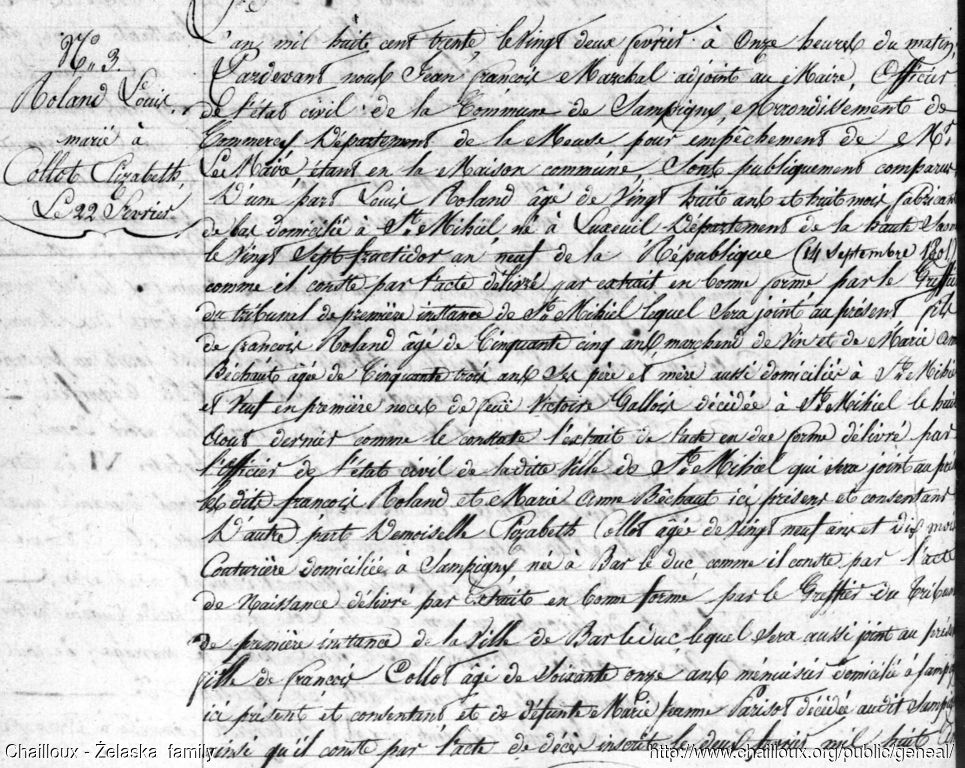 N.o 3
Roland Louis
marié à
Collot Elizabeth,
Le 22 Fevrier
L'an mil huit cent trente le vingt deux fevrier à Onze heures du matin,
Pardevant nous Jean francois Marchal adjoint au Maire Officier
de l'état civil de la Commune de Sampigny, Arrondissement de
Commercy Département de la Meuse pour empêchement de Mr.
Le Maire, étant en la Maison commune, Sont publiquement comparus
D'une part Louis Roland âgé de vingt huit ans et huit mois, fabricant
de bas domicilié à St. Mihiel né à Luxeuil Département de la haute Saone
le vingt Sept fructidor an neuf de la République (14 Septembre 1801)
comme il conste par l'acte délivré par extrait en bonne forme par le Greffier
du tribunal de première instance de St. Mihiel lequel sera joint au présent fils
de francois Roland âgé de Cinquante cinq ans, marchand de vin et de Marie Anne
Béchaut âgée de Cinquante trois ans Ses père et mère aussi domiciliés à St. Mihiel
et Veuf en première noces de feue Victoire Gallois décédée à St. Mihiel le huit
Aout dernier comme le constate l'extrait de l'acte en due forme délivré par
l'officier de l'état civil de ladite Ville de St. Mihiel qui sera joint au
Les dits francois Roland et Marie Anne Béchaut ici présens et consentans
D'autre part Demoiselle Elizabeth Collot âgée de vingt neuf ans et dix mois
Couturière domiciliée à Sampigny née à Bar le duc comme il conste par l'acte
de Naissance délivré par Extrait en bonne forme par le Greffier du Tribunal
de première instance de la Ville de Bar le duc lequel sera aussi joint au
fille de francois Collot âgé de Soixante onze ans menuisier domicilié a
ici présent et consentant et de défunte Marie Jeanne Parisot décédée audit
ainsi qu'il conste par l'acte de décès inscrit le deux fevrier mil huit
Chailloux - Żelaska family
http://www.chailloux.org/public/geneal/